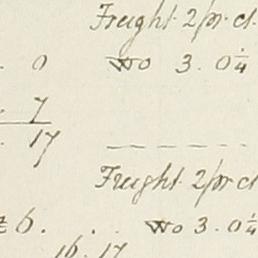 Freight 2 pr. ct.
. 0 Wo 3. 0¼
7
. 17
Freight 2 pr ct
6. . . Wo 3. 0¼
16. 17